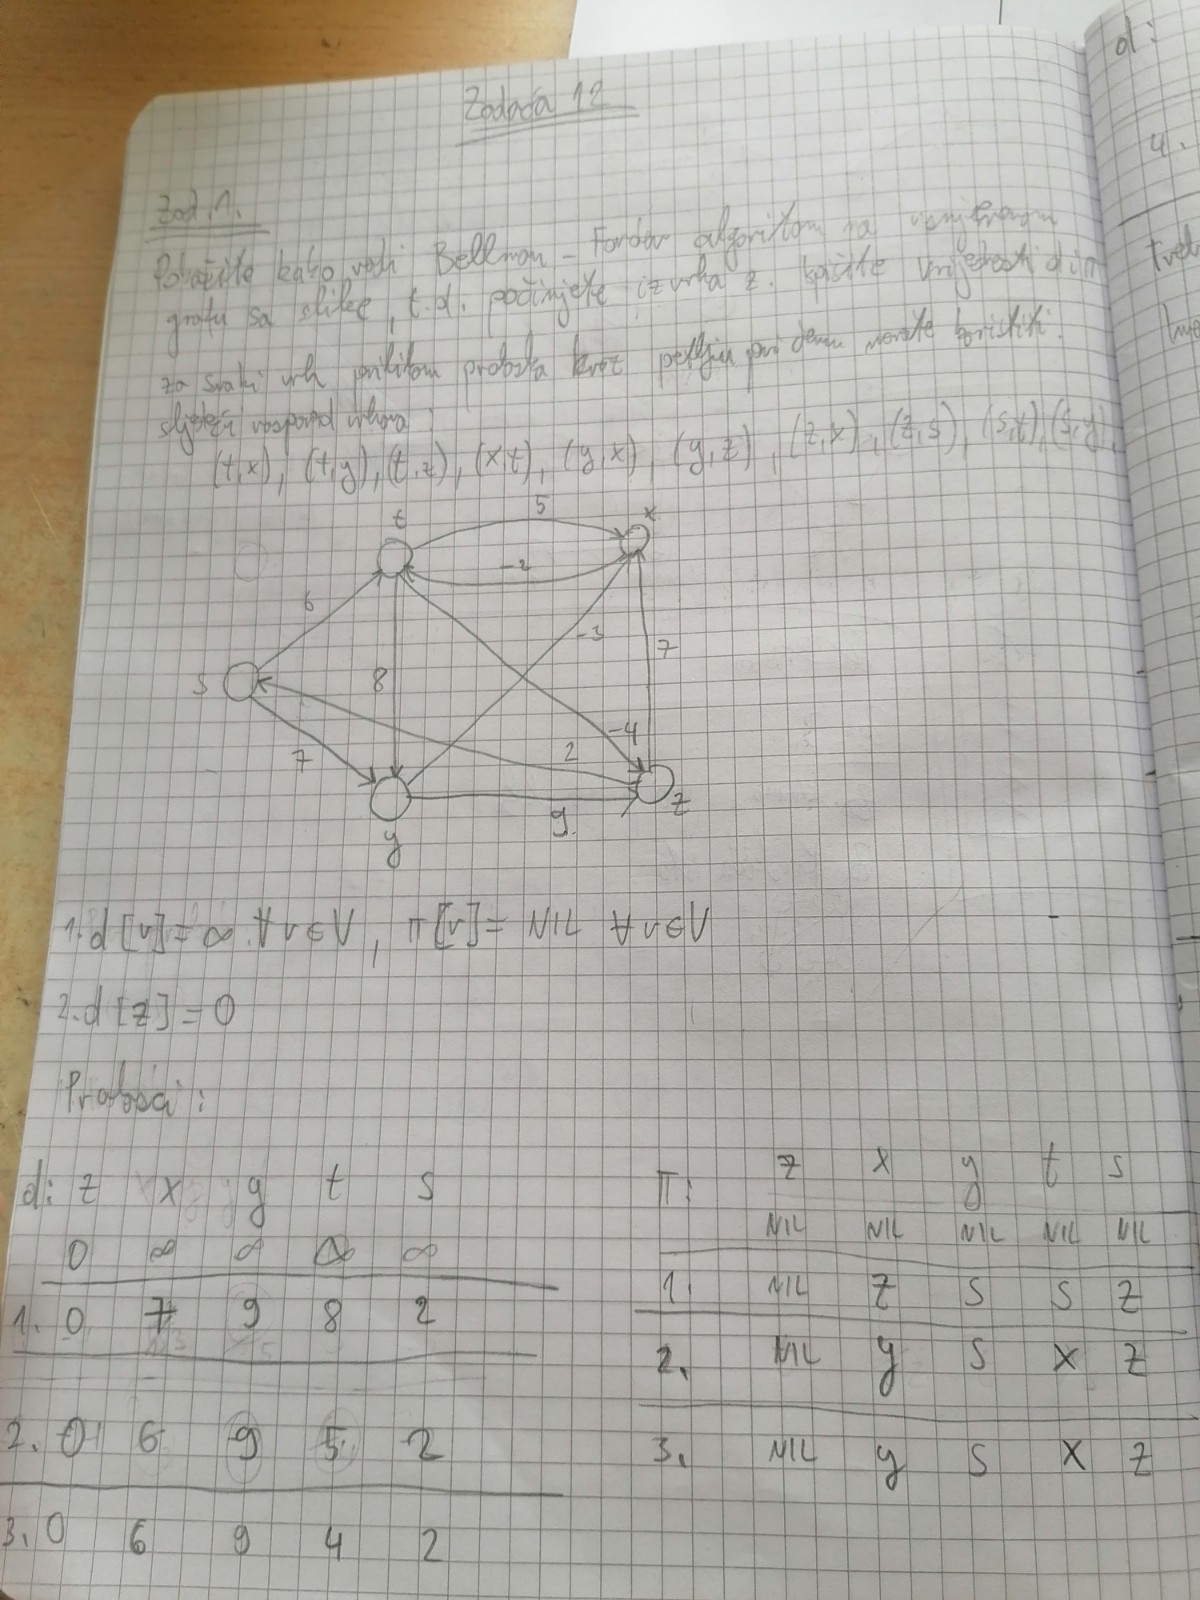 Zadaća 12
Zad. 1.
Pokažite kako radi Bellman - Fordov algoritam na usmjerenom
grafu sa slike, t.d. počinjete iz vrha z. Ispišite vrijednosti d i π
za svaki vrh prilikom prolaska kroz petlju pri čemu morate koristiti
sljedeći raspored vrhova:
(t,x), (t,y), (t,z), (x,t), (y,x), (y,z), (z,x), (z,s), (s,t), (s,y),
t 5 x
-2
6 -3
7
s 8
-4
7 2
9. z
y
1. d[v]=∞ ∀v∈V, π[v]= NIL ∀v∈V
2. d[z]=0
Prolasci:
d: z x y t s
0 ∞ ∞ ∞ ∞
1. 0 7 9 8 2
2. 0 6 9 5 2
3. 0 6 9 4 2
π: z x y t s
NIL NIL NIL NIL NIL
1. NIL z s s z
2. NIL y s x z
3. NIL y s x z
d:
4.